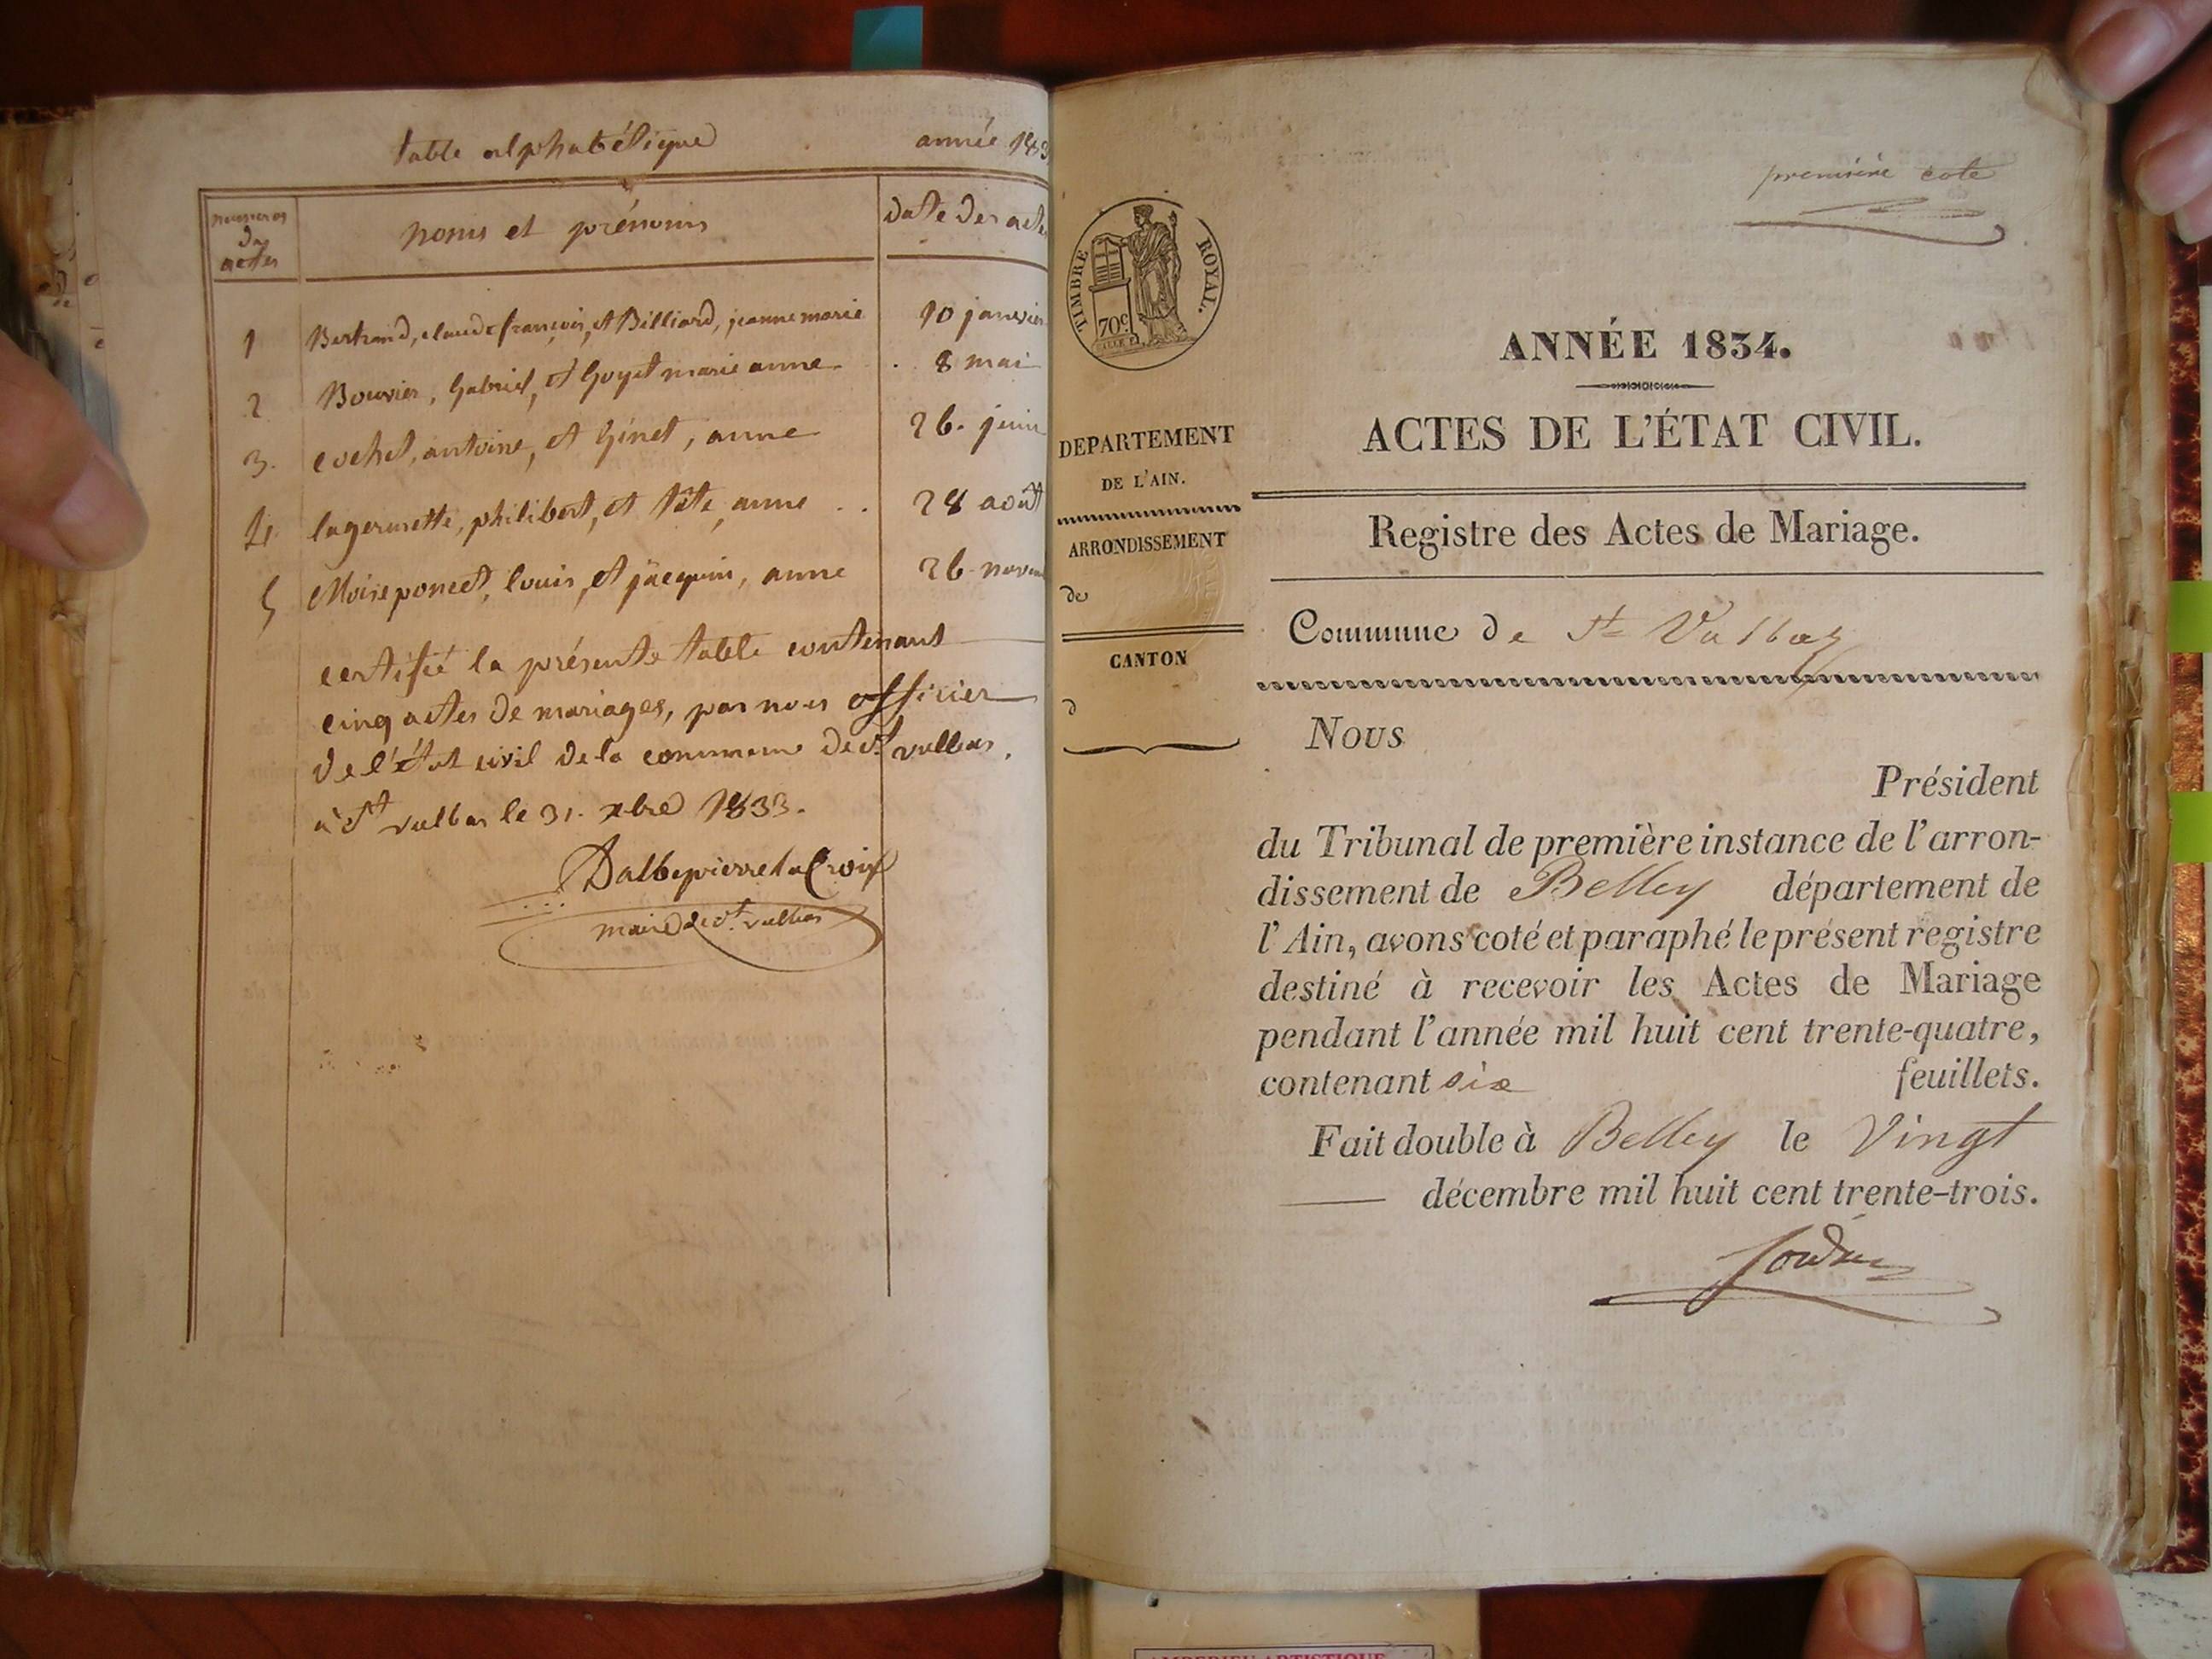 table alphabétique année 183
numeros des actes
noms et prénoms
date des actes
1 Bertrand, claude françois, et Billiard, jeanne marie 10 janvier
2 Bouvier, gabriel, et goyet marie anne . 8 mai
3. cochet, antoine, et ginet, anne 26. juin
4 lagermette, philibert, et tête, anne .. 28 août
5 Moire poncet, louis, et jacquin, anne 26 novem
certifié la présente table contenant
cinq actes de mariages, par nous officier
de l'état civil de la commune de st vulbas.
à st vulbas le 31. xbre 1833.
Dalbepierre la Croix
maire de st. vulbas
première cote
TIMBRE ROYAL.
70c.
ANNÉE 1834.
ACTES DE L'ÉTAT CIVIL.
DEPARTEMENT
DE L'AIN.
Registre des Actes de Mariage.
ARRONDISSEMENT
de
Commune de St Vulbas
CANTON
d
Nous
Président
du Tribunal de première instance de l'arron-
dissement de Belley département de
l'Ain, avons coté et paraphé le présent registre
destiné à recevoir les Actes de Mariage
pendant l'année mil huit cent trente-quatre,
contenant six feuillets.
Fait double à Belley le Vingt
décembre mil huit cent trente-trois.
AMBERIEU ARTISTIQUE